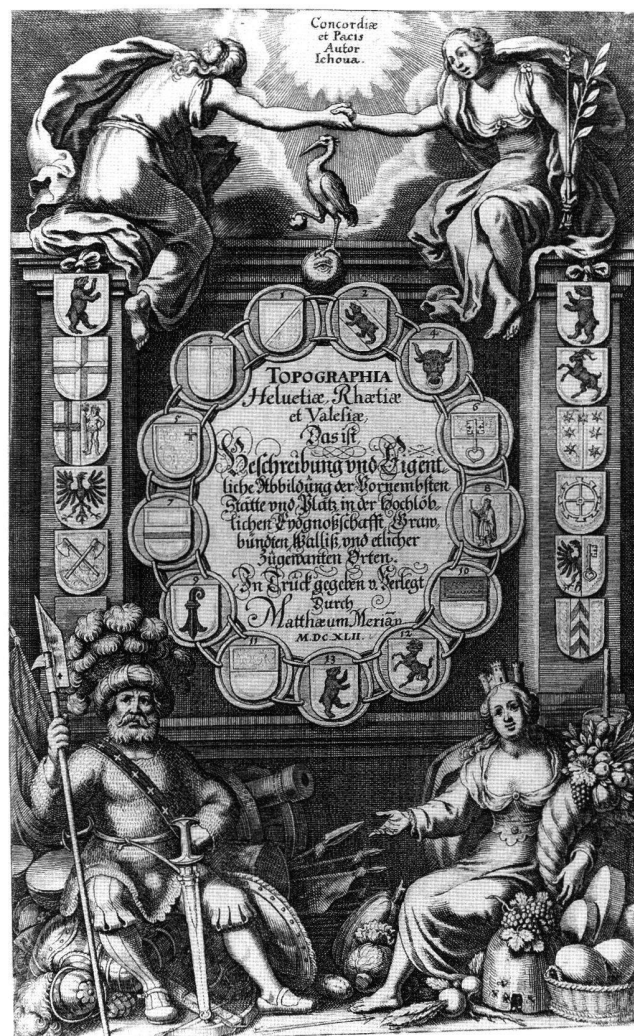 Concordiæ
et Pacis
Autor
Iehova.
1
2
3
4
5
6
7
8
9
10
11
12
13
TOPOGRAPHIA
Helvetiæ, Rhætiæ
et Valesiæ,
Das ist
Beschreibung vnd Eigent
liche Abbildung der Vornembsten
Stätte vnd Plätz in der Hochlöb-
lichen Eydgnoßschafft, Graw-
bündten, Walliß, vnd etlicher
Zugewanten Orten.
In Truck gegeben v. Verlegt
Durch
Matthæum Merian
M.DC.XLII.